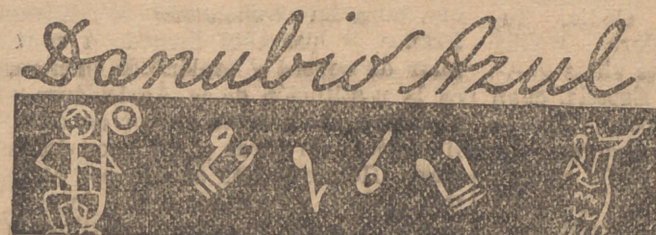 Danubio Azul